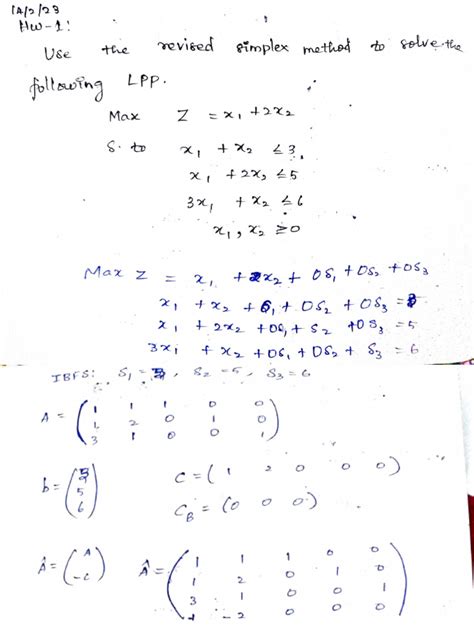 14/2/23
HW-1:
Use the revised simplex method to solve the
following LPP.
Max Z = x₁ + 2x₂
S. to x₁ + x₂ ≤ 3,
x₁ + 2x₂ ≤ 5
3x₁ + x₂ ≤ 6
x₁, x₂ ≥ 0
Max Z = x₁ + 2x₂ + 0S₁ + 0S₂ + 0S₃
x₁ + x₂ + S₁ + 0S₂ + 0S₃ = 3
x₁ + 2x₂ + 0S₁ + S₂ + 0S₃ = 5
3x₁ + x₂ + 0S₁ + 0S₂ + S₃ = 6
IBFS: S₁ = 3, S₂ = 5, S₃ = 6
A = ( 1 1 1 0 0
1 2 0 1 0
3 1 0 0 1 )
b = ( 3
5
6 )
C = ( 1 2 0 0 0 )
C_B = ( 0 0 0 )
Â = ( A
-C )
Â = ( 1 1 1 0 0
1 2 0 1 0
3 1 0 0 1
-1 -2 0 0 0 )